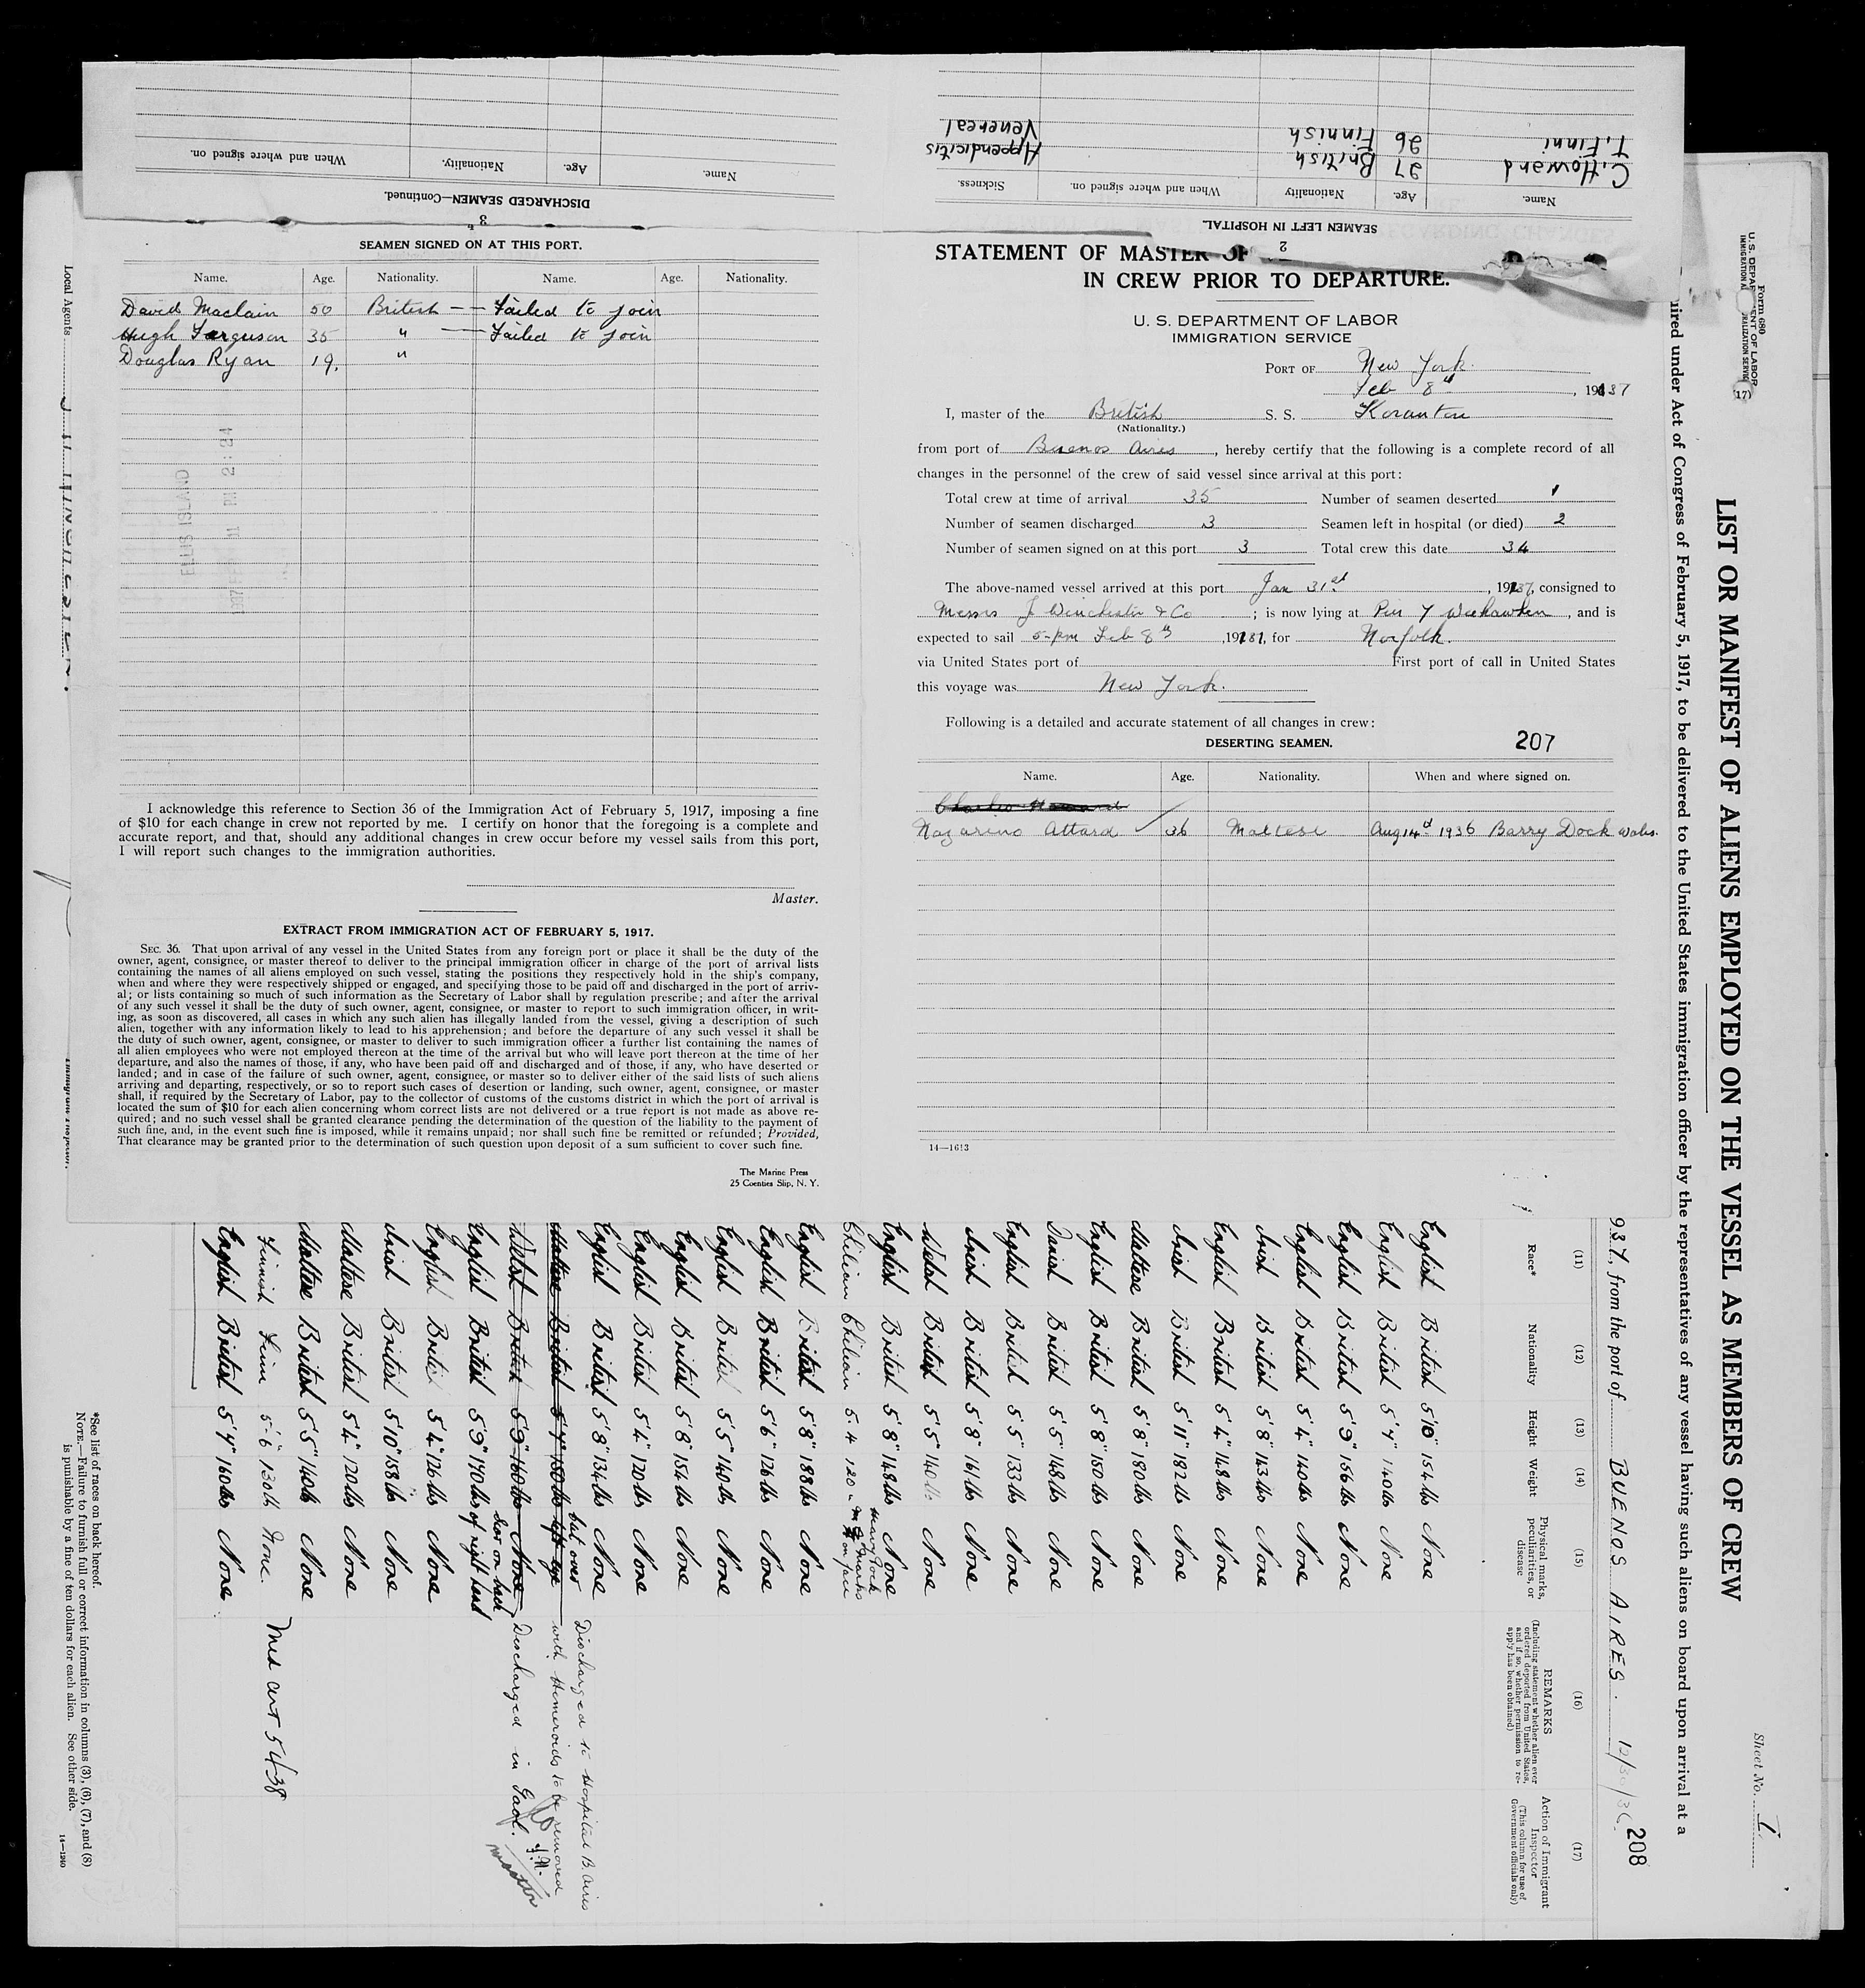 DISCHARGED SEAMEN—Continued.
3
Name. Age. Nationality. When and where signed on.
2
SEAMEN LEFT IN HOSPITAL.
Name. Age. Nationality When and where signed on. Sickness.
C. Howard 27 British Appendicitis
T. Finni 26 Finnish Venereal
SEAMEN SIGNED ON AT THIS PORT.
Name. Age. Nationality. Name. Age. Nationality.
David Maclain 50 British — Failed to join
Hugh Ferguson 35 " — Failed to join
Douglas Ryan 19. "
ELLIS ISLAND
I acknowledge this reference to Section 36 of the Immigration Act of February 5, 1917, imposing a fine
of $10 for each change in crew not reported by me. I certify on honor that the foregoing is a complete and
accurate report, and that, should any additional changes in crew occur before my vessel sails from this port,
I will report such changes to the immigration authorities.
Master.
EXTRACT FROM IMMIGRATION ACT OF FEBRUARY 5, 1917.
SEC. 36. That upon arrival of any vessel in the United States from any foreign port or place it shall be the duty of the
owner, agent, consignee, or master thereof to deliver to the principal immigration officer in charge of the port of arrival lists
containing the names of all aliens employed on such vessel, stating the positions they respectively hold in the ship's company,
when and where they were respectively shipped or engaged, and specifying those to be paid off and discharged in the port of arriv-
al; or lists containing so much of such information as the Secretary of Labor shall by regulation prescribe; and after the arrival
of any such vessel it shall be the duty of such owner, agent, consignee, or master to report to such immigration officer, in writ-
ing, as soon as discovered, all cases in which any such alien has illegally landed from the vessel, giving a description of such
alien, together with any information likely to lead to his apprehension; and before the departure of any such vessel it shall be
the duty of such owner, agent, consignee, or master to deliver to such immigration officer a further list containing the names of
all alien employees who were not employed thereon at the time of the arrival but who will leave port thereon at the time of her
departure, and also the names of those, if any, who have been paid off and discharged and of those, if any, who have deserted or
landed; and in case of the failure of such owner, agent, consignee, or master so to deliver either of the said lists of such aliens
arriving and departing, respectively, or so to report such cases of desertion or landing, such owner, agent, consignee, or master
shall, if required by the Secretary of Labor, pay to the collector of customs of the customs district in which the port of arrival is
located the sum of $10 for each alien concerning whom correct lists are not delivered or a true report is not made as above re-
quired; and no such vessel shall be granted clearance pending the determination of the question of the liability to the payment of
such fine, and, in the event such fine is imposed, while it remains unpaid; nor shall such fine be remitted or refunded; Provided,
That clearance may be granted prior to the determination of such question upon deposit of a sum sufficient to cover such fine.
The Marine Press
25 Coenties Slip, N. Y.
STATEMENT OF MASTER OF
IN CREW PRIOR TO DEPARTURE.
U. S. DEPARTMENT OF LABOR
IMMIGRATION SERVICE
PORT OF New York.
Feb 8th, 1937
I, master of the British S. S. Koranton
(Nationality.)
from port of Buenos Aires, hereby certify that the following is a complete record of all
changes in the personnel of the crew of said vessel since arrival at this port:
Total crew at time of arrival 35 Number of seamen deserted 1
Number of seamen discharged 3 Seamen left in hospital (or died) 2
Number of seamen signed on at this port 3 Total crew this date 34
The above-named vessel arrived at this port Jan 31st, 1937, consigned to
Messrs J Winchester & Co; is now lying at Pier 7 Weehawken, and is
expected to sail 5-pm Feb 8th, 1937, for Norfolk.
via United States port of First port of call in United States
this voyage was New York.
Following is a detailed and accurate statement of all changes in crew:
DESERTING SEAMEN. 207
Name. Age. Nationality. When and where signed on.
Charles Howard
Nazarino Attard 36 Maltese Aug 14th 1936 Barry Dock Wales.
14—1613
Form 680
U. S. DEPARTMENT OF LABOR
Sheet No. I
LIST OR MANIFEST OF ALIENS EMPLOYED ON THE VESSEL AS MEMBERS OF CREW
ired under Act of Congress of February 5, 1917, to be delivered to the United States immigration officer by the representatives of any vessel having such aliens on board upon arrival at a
937, from the port of BUENOS AIRES. 12/30/36. 208
(11) (12) (13) (14) (15) (16) (17)
Race* Nationality Height Weight Physical marks, peculiarities, or disease
REMARKS (Including statement whether alien ever ordered deported from United States, and if so, whether permission to re-apply has been obtained)
Action of Immigrant Inspector (This column for use of Government officials only)
English British 5'10" 154 lbs None
English British 5'4" 140 lbs None
English British 5'9" 156 lbs None
English British 5'4" 140 lbs None
Irish British 5'8" 143 lbs None
English British 5'4" 148 lbs None
Irish British 5'11" 182 lbs None
Maltese British 5'8" 180 lbs None
English British 5'8" 150 lbs None
Danish British 5'5" 148 lbs None
English British 5'5" 133 lbs None
Irish British 5'8" 141 lbs None
Welsh British 5'5" 140 lbs None
English British 5'8" 148 lbs None
Chilian Chilian 5.4 120 " many Pock marks on face
English British 5'8" 188 lbs None
English British 5'6" 126 lbs None
English British 5'5" 140 lbs None
English British 5'8" 154 lbs None
English British 5'4" 120 lbs None
English British 5'8" 134 lbs None
Maltese British 5'4" 150 lbs cut over left eye Discharged to Hospital B. Aires with Hemeroids to be removed
Welsh British 5'9" 160 lbs None Discharged in Gaol. J.H. master
English British 5'9" 170 lbs scar on back of right hand
English British 5'4" 126 lbs None
Irish British 5'10" 158 lb None
Maltese British 5'4" 120 lbs None
Maltese British 5'5" 140 lb None
Finnish Finn 5'6" 130 lb None. Med cert 5438
English British 5'4" 160 lbs None
*See list of races on back hereof.
NOTE.—Failure to furnish full or correct information in columns (3), (6), (7), and (8)
is punishable by a fine of ten dollars for each alien. See other side.
14—1240
Local Agents
Immigrant Inspector.